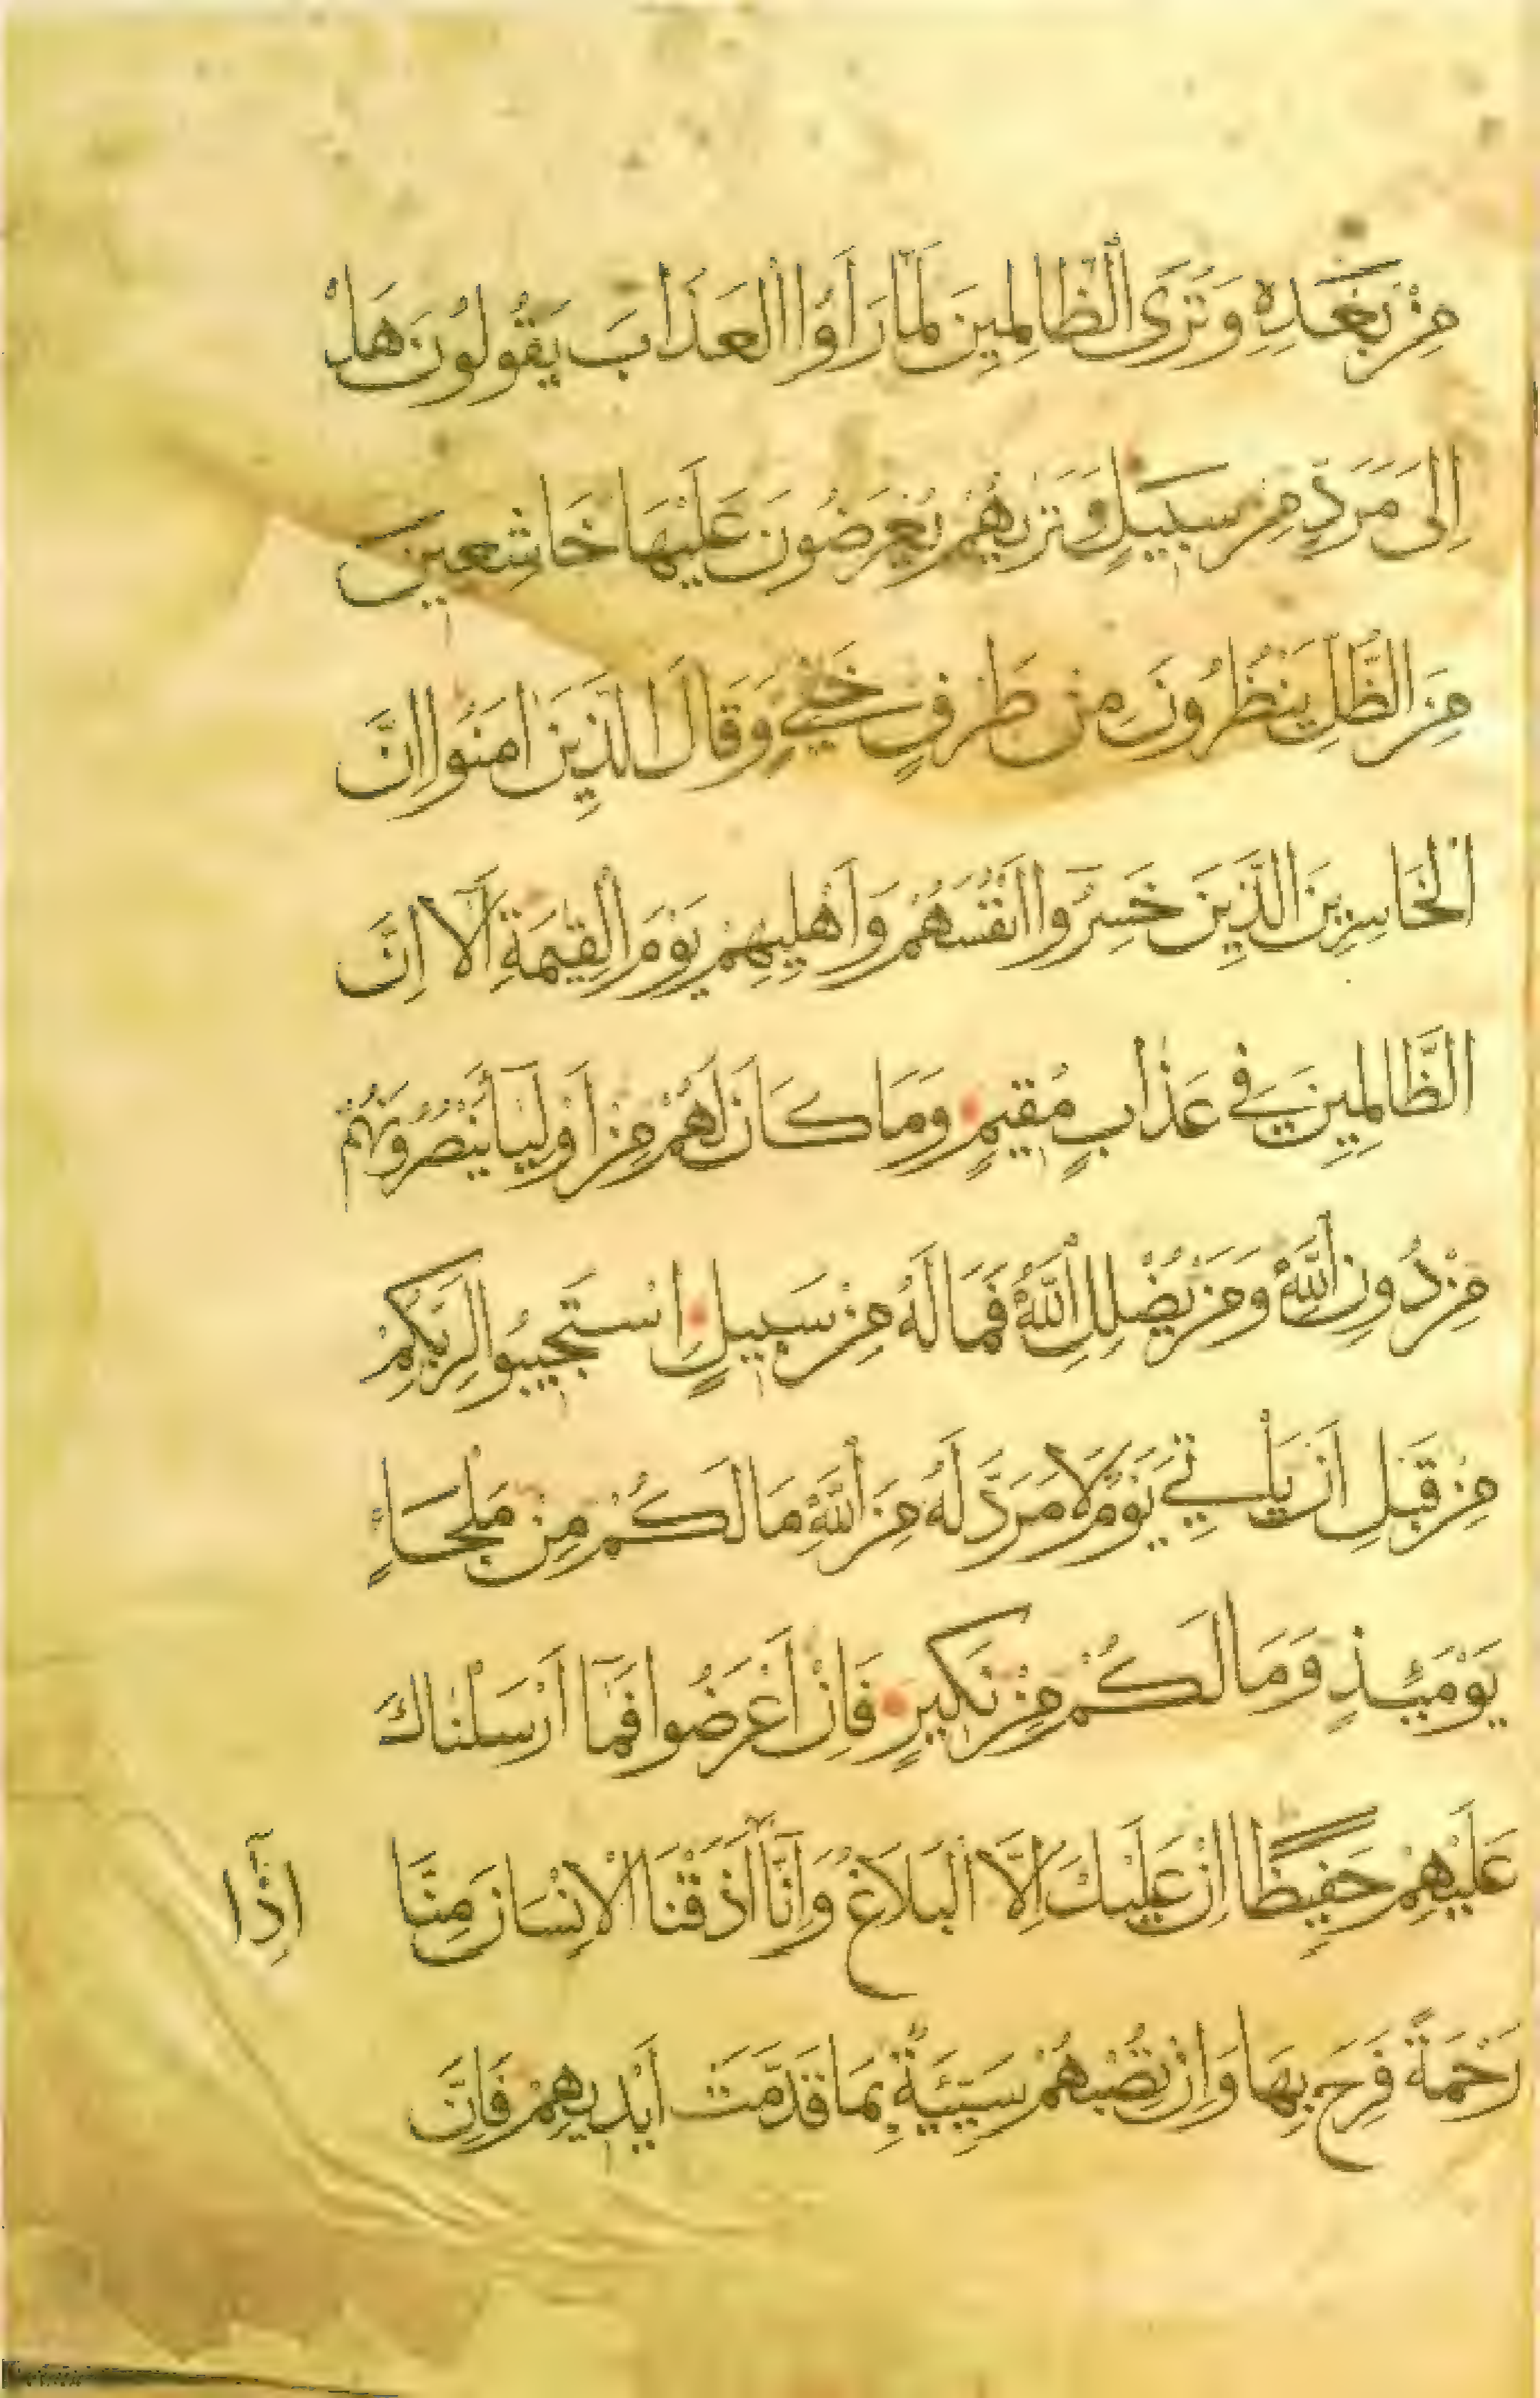 مِنْ بَعْدِهِ وَتَرَى الظَّالِمِينَ لَمَّا رَاَوُا الْعَذَابَ يَقُولُونَ هَلْ
اِلَى مَرَدٍّ مِنْ سَبِيلٍ وَتَرٰيهُمْ يُعْرَضُونَ عَلَيْهَا خَاشِعِينَ
مِنَ الذُّلِّ يَنْظُرُونَ مِنْ طَرْفٍ خَفِيٍّ وَقَالَ الَّذِينَ اٰمَنُوا اِنَّ
الْخَاسِرِينَ الَّذِينَ خَسِرُوا اَنْفُسَهُمْ وَاَهْلِيهِمْ يَوْمَ الْقِيٰمَةِ اَلَا اِنَّ
الظَّالِمِينَ فِي عَذَابٍ مُقِيمٍ وَمَا كَانَ لَهُمْ مِنْ اَوْلِيَآءَ يَنْصُرُونَهُمْ
مِنْ دُونِ اللّٰهِ وَمَنْ يُضْلِلِ اللّٰهُ فَمَا لَهُ مِنْ سَبِيلٍ اِسْتَجِيبُوا لِرَبِّكُمْ
مِنْ قَبْلِ اَنْ يَأْتِيَ يَوْمٌ لَا مَرَدَّ لَهُ مِنَ اللّٰهِ مَا لَكُمْ مِنْ مَلْجَاءٍ
يَوْمَئِذٍ وَمَا لَكُمْ مِنْ نَكِيرٍ فَاِنْ اَعْرَضُوا فَمَا اَرْسَلْنَاكَ
عَلَيْهِمْ حَفِيظًا اِنْ عَلَيْكَ اِلَّا الْبَلَاغُ وَاِنَّا اِذَا اَذَقْنَا الْاِنْسَانَ مِنَّا
رَحْمَةً فَرِحَ بِهَا وَاِنْ تُصِبْهُمْ سَيِّئَةٌ بِمَا قَدَّمَتْ اَيْدِيهِمْ فَاِنَّ